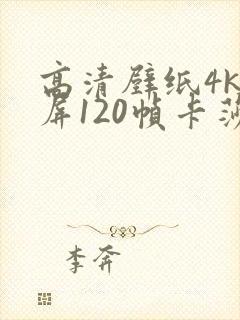 高清壁纸4K
屏120帧卡莎
李奔